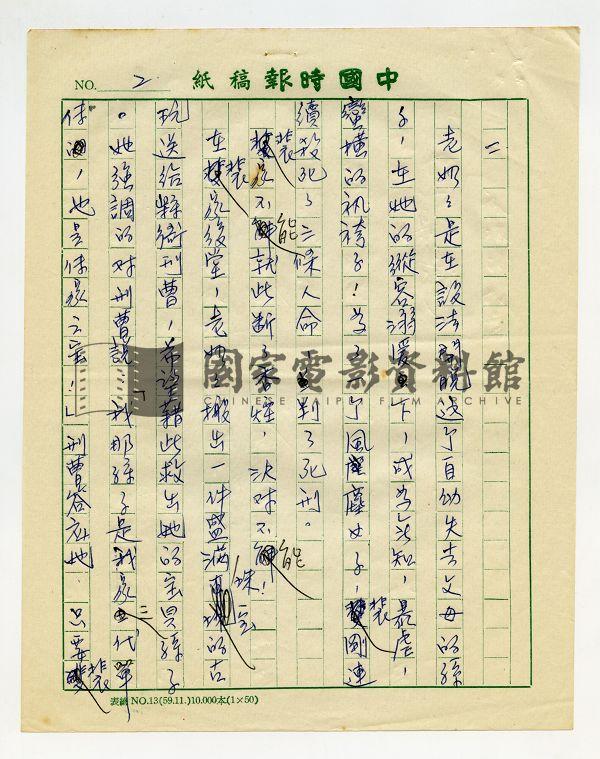 中國時報稿紙
NO. 2
二
老奶々是在設法開脫這了自幼失去父母的孫
子,在她的縱容溺愛下,成為無知,暴虐,
蠻橫的紈袴子!為了了風塵女子,裴剛連
續殺死了三條人命,判了死刑。
裴家不能就此斷了香煙,決对不能!
在裴家後堂,老奶々搬出一件盛滿珠宝的古
玩送給縣衙刑曹,希望藉此救出她的宝貝孫子
。她強調的对刑曹說:「我那孫子是我家三代單
傳,也是傳家之宝!」刑曹答应她,只要裴
國家電影資料館
CHINESE TAIPEI FILM ARCHIVE
表續NO.13(59.11.)10.000本(1×50)